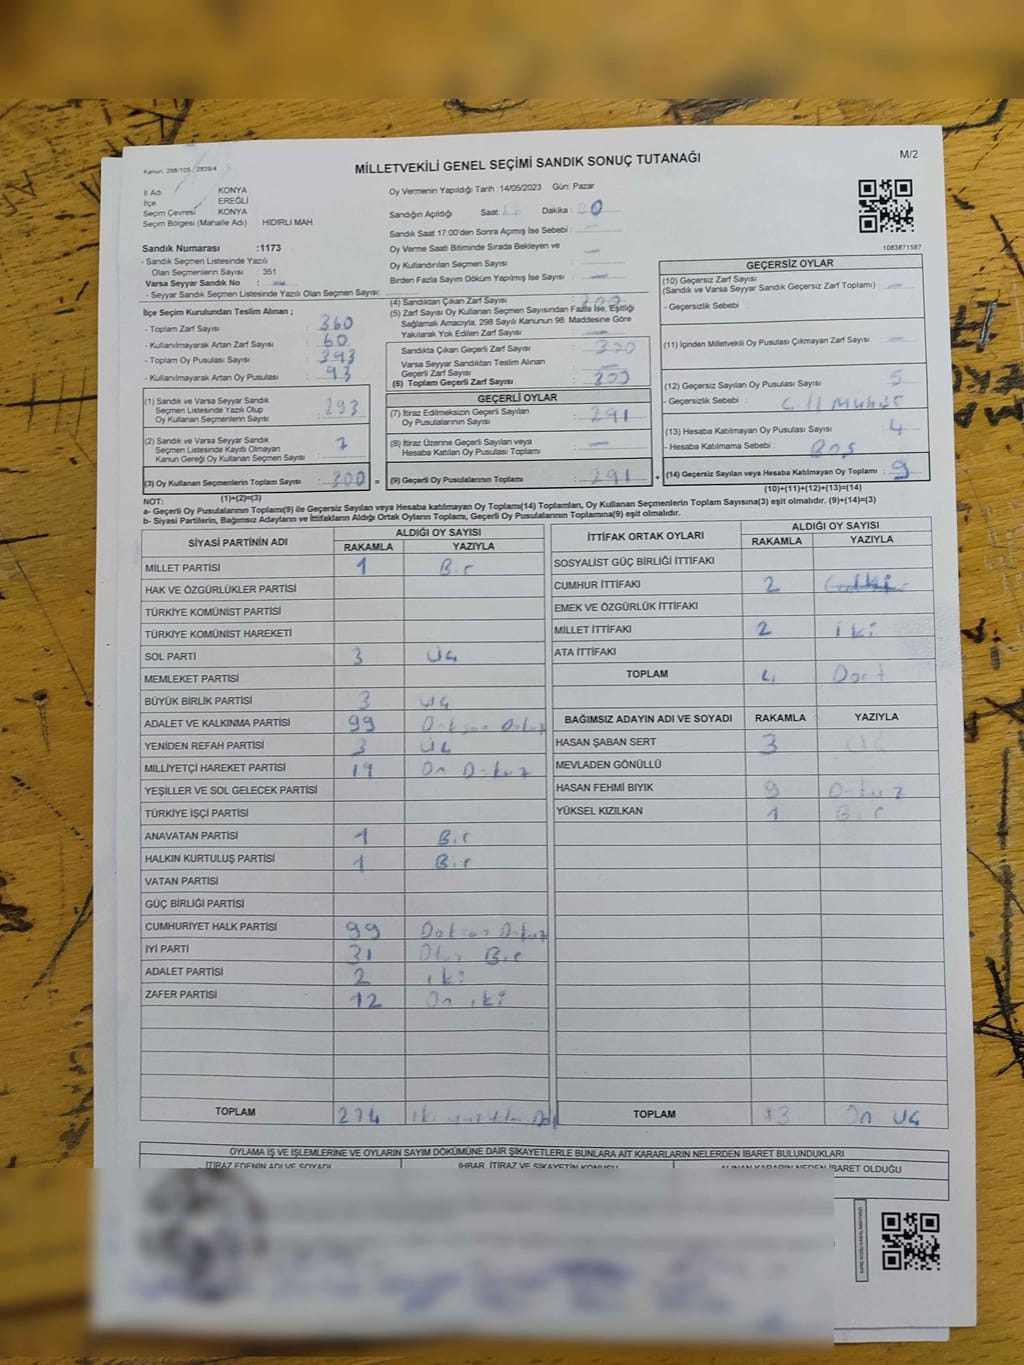 Kanun: 298/105, 2839/4
MİLLETVEKİLİ GENEL SEÇİMİ SANDIK SONUÇ TUTANAĞI
M/2
İl Adı KONYA
İlçe EREĞLİ
Seçim Çevresi KONYA
Seçim Bölgesi (Mahalle Adı) HIDIRLI MAH.
Sandık Numarası :1173
- Sandık Seçmen Listesinde Yazılı
Olan Seçmenlerin Sayısı : 351
Varsa Seyyar Sandık No :
- Seyyar Sandık Seçmen Listesinde Yazılı Olan Seçmen Sayısı:
Oy Vermenin Yapıldığı Tarih :14/05/2023 Gün: Pazar
Sandığın Açıldığı Saat: Dakika :
Sandık Saat 17:00'den Sonra Açımış İse Sebebi :
Oy Verme Saati Bitiminde Sırada Bekleyen ve
Oy Kullandırılan Seçmen Sayısı :
Birden Fazla Sayım Döküm Yapılmış İse Sayısı :
1083871587
İlçe Seçim Kurulundan Teslim Alınan ;
- Toplam Zarf Sayısı : 360
- Kullanılmayarak Artan Zarf Sayısı : 60
- Toplam Oy Pusulası Sayısı : 393
- Kullanılmayarak Artan Oy Pusulası : 93
(1) Sandık ve Varsa Seyyar Sandık
Seçmen Listesinde Yazılı Olup
Oy Kullanan Seçmenlerin Sayısı : 293
(2) Sandık ve Varsa Seyyar Sandık
Seçmen Listesinde Kayıtlı Olmayan
Kanun Gereği Oy Kullanan Seçmen Sayısı : 7
(3) Oy Kullanan Seçmenlerin Toplam Sayısı : 300 =
(1)+(2)=(3)
(4) Sandıktan Çıkan Zarf Sayısı : 300
(5) Zarf Sayısı Oy Kullanan Seçmen Sayısından Fazla İse, Eşitliği
Sağlamak Amacıyla, 298 Sayılı Kanunun 98. Maddesine Göre
Yakılarak Yok Edilen Zarf Sayısı :
Sandıkta Çıkan Geçerli Zarf Sayısı : 300
Varsa Seyyar Sandıktan Teslim Alınan
Geçerli Zarf Sayısı :
(6) Toplam Geçerli Zarf Sayısı : 300
GEÇERLİ OYLAR
(7) İtiraz Edilmeksizin Geçerli Sayılan
Oy Pusulalarının Sayısı : 291
(8) İtiraz Üzerine Geçerli Sayılan veya
Hesaba Katılan Oy Pusulası Toplamı :
(9) Geçerli Oy Pusulalarının Toplamı : 291 +
GEÇERSİZ OYLAR
(10) Geçersiz Zarf Sayısı
(Sandık ve Varsa Seyyar Sandık Geçersiz Zarf Toplamı) :
- Geçersizlik Sebebi :
(11) İçinden Milletvekili Oy Pusulası Çıkmayan Zarf Sayısı :
(12) Geçersiz Sayılan Oy Pusulası Sayısı : 5
- Geçersizlik Sebebi :
(13) Hesaba Katılmayan Oy Pusulası Sayısı : 4
- Hesaba Katılmama Sebebi : Boş
(14) Geçersiz Sayılan veya Hesaba Katılmayan Oy Toplamı : 9
(10)+(11)+(12)+(13)=(14)
NOT:
a- Geçerli Oy Pusulalarının Toplamı(9) ile Geçersiz Sayılan veya Hesaba katılmayan Oy Toplamı(14) Toplamları, Oy Kullanan Seçmenlerin Toplam Sayısına(3) eşit olmalıdır. (9)+(14)=(3)
b- Siyasi Partilerin, Bağımsız Adayların ve İttifakların Aldığı Ortak Oyların Toplamı, Geçerli Oy Pusulalarının Toplamına(9) eşit olmalıdır.
SİYASİ PARTİNİN ADI ALDIĞI OY SAYISI
RAKAMLA YAZIYLA
MİLLET PARTİSİ 1 Bir
HAK VE ÖZGÜRLÜKLER PARTİSİ
TÜRKİYE KOMÜNİST PARTİSİ
TÜRKİYE KOMÜNİST HAREKETİ
SOL PARTİ 3 Üç
MEMLEKET PARTİSİ
BÜYÜK BİRLİK PARTİSİ 3 Üç
ADALET VE KALKINMA PARTİSİ 99 Doksan Dokuz
YENİDEN REFAH PARTİSİ 3 Üç
MİLLİYETÇİ HAREKET PARTİSİ 19 On Dokuz
YEŞİLLER VE SOL GELECEK PARTİSİ
TÜRKİYE İŞÇİ PARTİSİ
ANAVATAN PARTİSİ 1 Bir
HALKIN KURTULUŞ PARTİSİ 1 Bir
VATAN PARTİSİ
GÜÇ BİRLİĞİ PARTİSİ
CUMHURİYET HALK PARTİSİ 99 Doksan Dokuz
İYİ PARTİ 31 Otuz Bir
ADALET PARTİSİ 2 iki
ZAFER PARTİSİ 12 On iki
TOPLAM 274
İTTİFAK ORTAK OYLARI ALDIĞI OY SAYISI
RAKAMLA YAZIYLA
SOSYALİST GÜÇ BİRLİĞİ İTTİFAKI
CUMHUR İTTİFAKI 2
EMEK VE ÖZGÜRLÜK İTTİFAKI
MİLLET İTTİFAKI 2 iki
ATA İTTİFAKI
TOPLAM 4 Dört
BAĞIMSIZ ADAYIN ADI VE SOYADI RAKAMLA YAZIYLA
HASAN ŞABAN SERT 3 Üç
MEVLADEN GÖNÜLLÜ
HASAN FEHMİ BIYIK 9 Dokuz
YÜKSEL KIZILKAN 1 Bir
TOPLAM 13 On Üç
OYLAMA İŞ VE İŞLEMLERİNE VE OYLARIN SAYIM DÖKÜMÜNE DAİR ŞİKAYETLERLE BUNLARA AİT KARARLARIN NELERDEN İBARET BULUNDUKLARI
İTİRAZ EDENİN ADI VE SOYADI İHBAR, İTİRAZ VE ŞİKAYETİN KONUSU ALINAN KARARIN NEDEN İBARET OLDUĞU